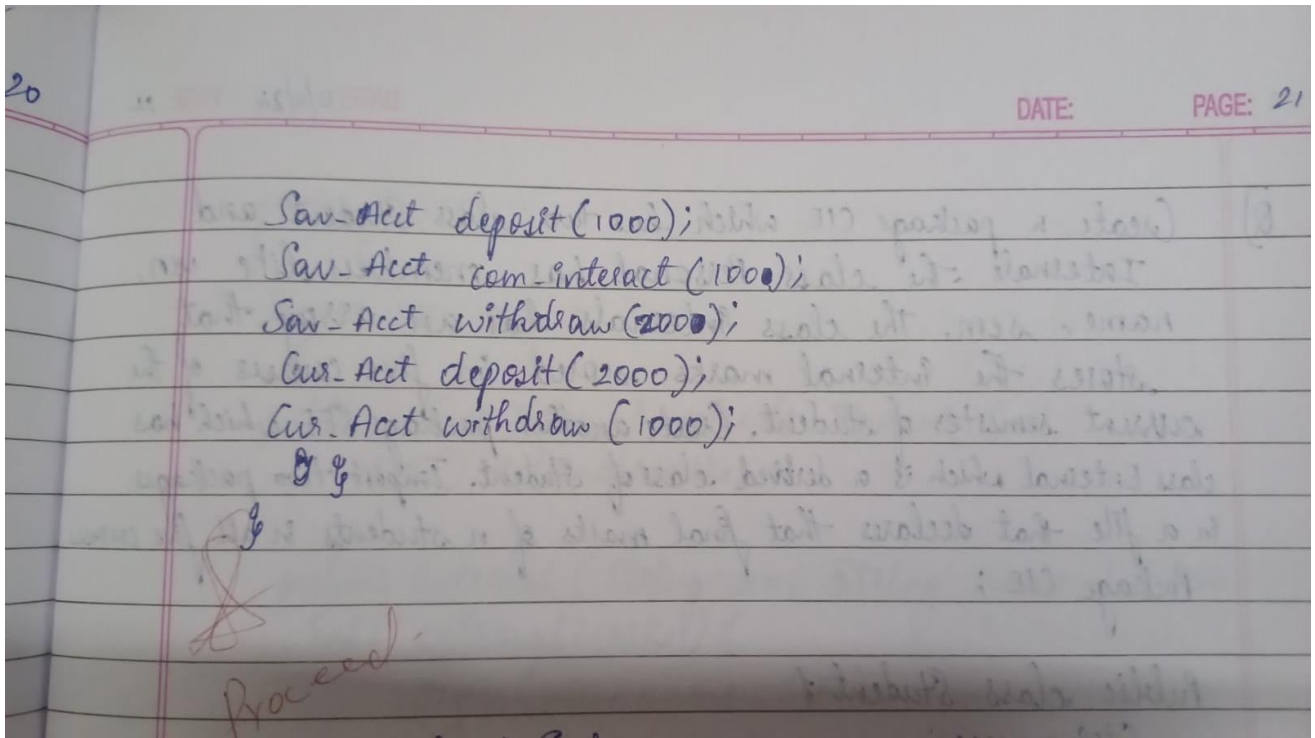 20
DATE: PAGE: 21
Sav-Acct deposit(1000);
Sav-Acct com-interact(1000);
Sav-Acct withdraw(2000);
Cur-Acct deposit(2000);
Cur-Acct withdraw(1000);
}
}
Proceed